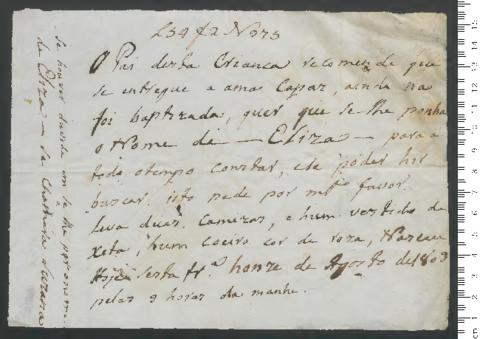 L 34 f 2 N 373
O Pai desta Crianca recomenda que
se entregue a ama Capaz, ainda na
foi baptizada, quer que se lhe ponha
o Nome de — Eliza — para a
todo otempo constar, e le poder hir
buscar. isto pede por mto favor.
leva duas Camizas, e hum vestido de
xita, hum coeiro cor de roza, Nasceu
Hoje sexta fra honze de Agosto de 1803
pelas 9 horas da manhe.
se houver duvida em se lhe por o nome
de Eliza — se Chamara